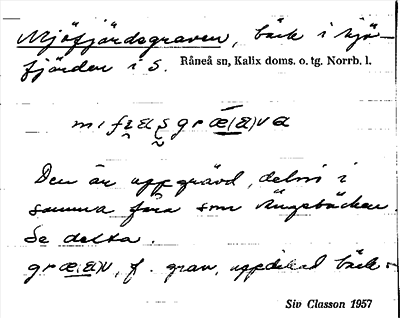 Mjöfjärdsgraven, bäck i Mjö-
fjärden i S. Råneå sn, Kalix doms. o. tg. Norrb. l.
Den är uppgrävd, delvis i
samma fåra som Ängesbäcken.
Se detta.
f. grav, uppdikad bäck
Siv Classon 1957